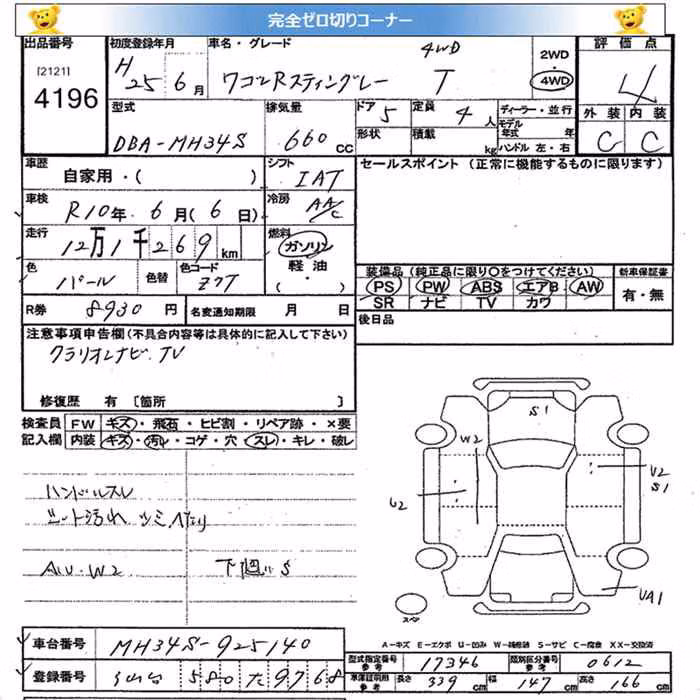 完全ゼロ切りコーナー
出品番号 [2121] 4196
初度登録年月 H 25年 6月
車名・グレード 4WD ワゴンRスティングレー T
2WD 4WD
評価点 4
外装 C 内装 C
型式 DBA-MH34S
排気量 660 CC
ドア 5 形状
定員 4人 積載 kg
ディーラー・並行
モデル年式 年
ハンドル 左・右
車歴 自家用・( )
シフト IAT
車検 R10年 6月(6日)
冷房 AA/C
走行 12万1千269km
燃料 ガソリン 軽油 ・
色 パール 色替 色コード Z7T
R券 8930円 名変通知期限 月 日
セールスポイント (正常に機能するものに限ります)
装備品 (純正品に限り○をつけてください)
PS PW ABS エアB AW
SR ナビ TV カワ
新車保証書 有・無
後日品
注意事項申告欄(不具合内容等は具体的に記入して下さい)
クラリオンナビ.TV
修復歴 有 〔箇所 〕
検査員記入欄
FW キズ・飛石・ヒビ割・リペア跡・×要
内装 キズ・汚レ・コゲ・穴・スレ・キレ・破レ
ハンドルスレ
シート汚れ
A U・W2 下廻りS
S1
W2
U2
U2
S1
UA1
スペア
A-キズ E-エクボ U-凹み W-補修跡 S-サビ C-腐食 XX-交換済
車台番号 MH34S-925140
登録番号 仙台 580 た 9768
型式指定番号 参考 17346
類別区分番号 参考 0612
車庫証明用 参考 長さ 339cm 幅 147cm 高さ 166cm